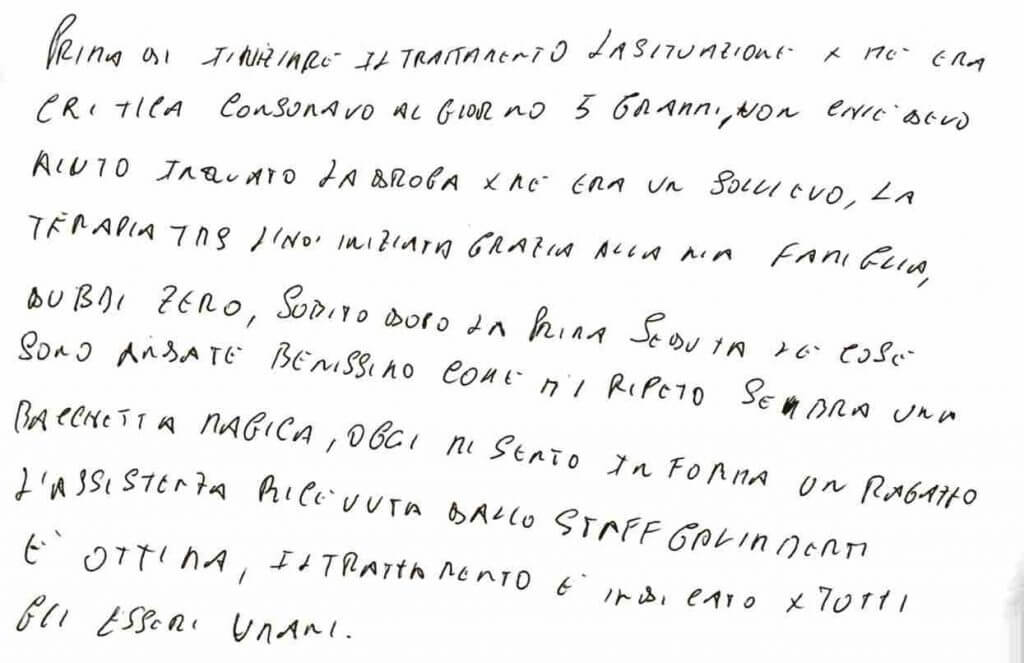 PRIMA DI INIZIARE IL TRATTAMENTO LA SITUAZIONE X ME ERA
CRITICA CONSUMAVO AL GIORNO 5 GRAMMI, NON CHIEDEVO
AIUTO INQUATO LA DROGA X ME ERA UN SOLLIEVO, LA
TERAPIA TMS L'HO INIZIATA GRAZIA ALLA MIA FAMIGLIA,
DUBBI ZERO, SUBITO DOPO LA PRIMA SEDUTA LE COSE
SONO ANDATE BENISSIMO COME MI RIPETO SEMBRA UNA
BACCHETTA MAGICA, OGGI MI SENTO IN FORMA UN RAGAZZO
L'ASSISTENZA RICEVUTA DALLO STAFF GALIMBERTI
E' OTTIMA, IL TRATTAMENTO E' INDICATO X TUTTI
GLI ESSERI UMANI.